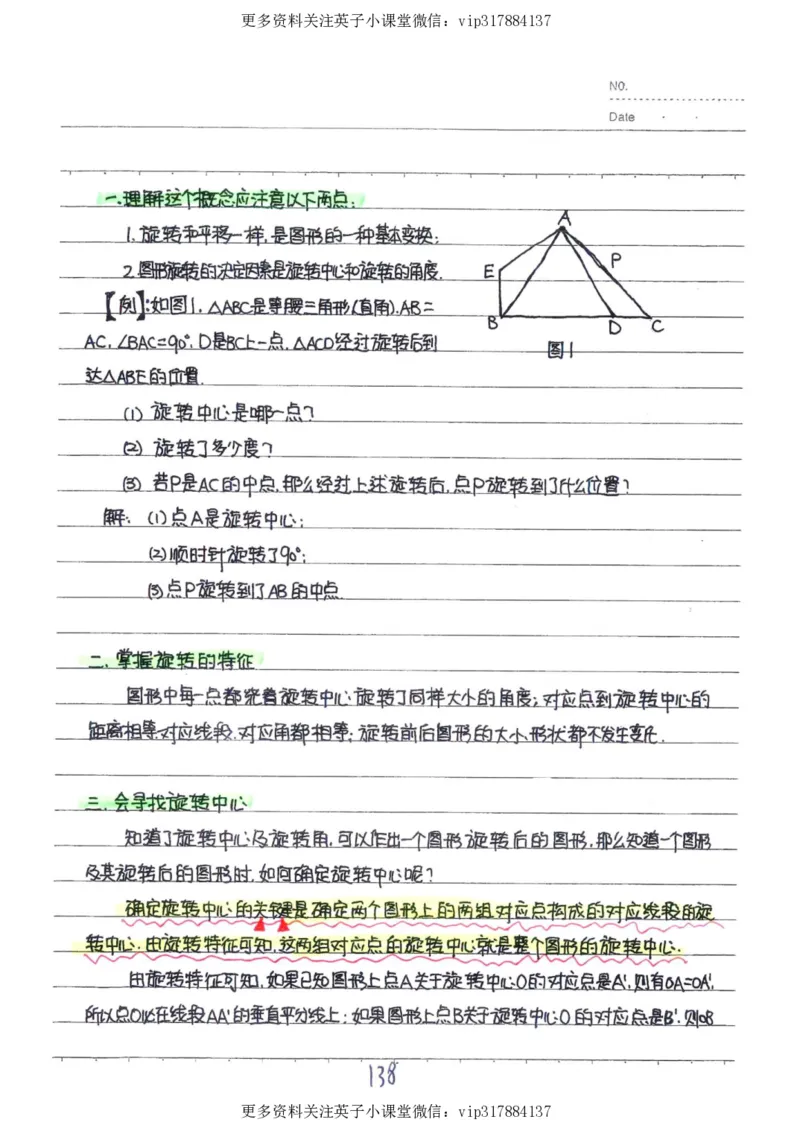 更多资料关注英子小课堂微信：vip317884137
NO.
Date
一.理解这个概念应注意以下两点：
1.旋转和平移一样,是图形的一种基本变换;
2.图形旋转的决定因素是旋转中心和旋转的角度.
A
P
E
B
D
C
图1
【例】:如图1,△ABC是等腰三角形(直角),AB=
AC,∠BAC=90°,D是BC上一点,△ACD经过旋转后到
达△ABE的位置.
(1) 旋转中心是哪一点？
(2) 旋转了多少度？
(3) 若P是AC的中点,那么经过上述旋转后,点P旋转到了什么位置？
解：(1)点A是旋转中心;
(2)顺时针旋转了90°;
(3)点P旋转到了AB的中点.
二.掌握旋转的特征
图形中每一点都绕着旋转中心旋转了同样大小的角度;对应点到旋转中心的
距离相等.对应线段.对应角都相等;旋转前后图形的大小.形状都不发生变化.
三.会寻找旋转中心
知道了旋转中心及旋转角,可以作出一个图形旋转后的图形,那么知道一个图形
及其旋转后的图形时,如何确定旋转中心呢?
确定旋转中心的关键是确定两个图形上的两组对应点构成的对应线段的旋
转中心.由旋转特征可知,这两组对应点的旋转中心就是整个图形的旋转中心.
由旋转特征可知,如果已知图形上点A关于旋转中心O的对应点是A',则有OA=OA',
所以点O必在线段AA'的垂直平分线上;如果图形上点B关于旋转中心O的对应点是B',则OB
138
更多资料关注英子小课堂微信：vip317884137